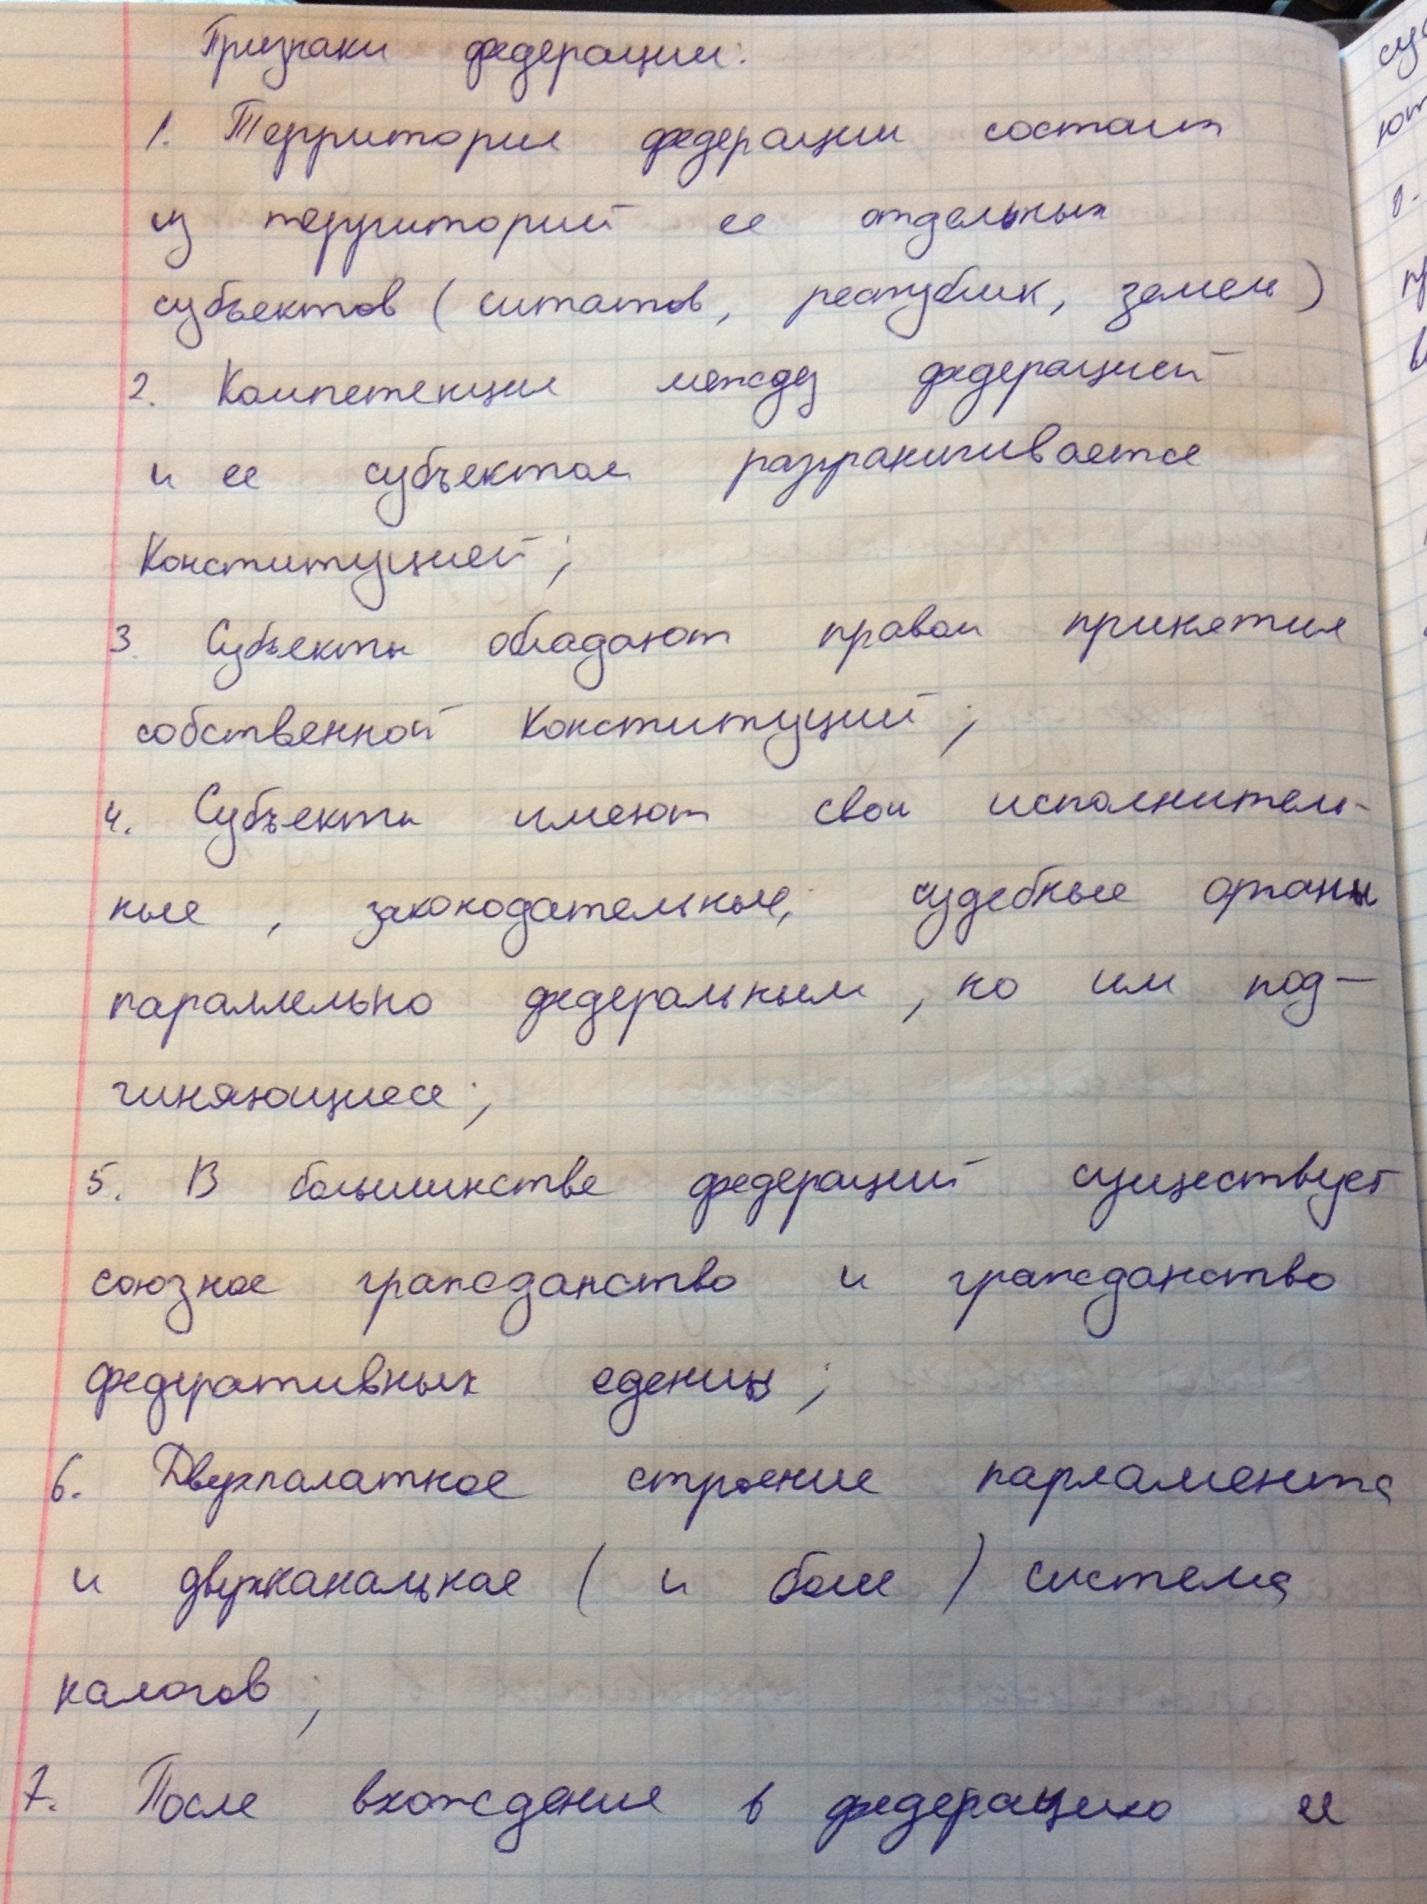 Признаки федерации:
1. Территория федерации состоит
из территорий ее отдельных
субъектов (штатов, республик, земель)
2. Компетенция между федерацией
и ее субъектом разграничивается
Конституцией;
3. Субъекты обладают правом принятия
собственной Конституций;
4. Субъекты имеют свои исполнитель-
ные, законодательные, судебные органы
параллельно федеральным, но им под-
чиняющиеся;
5. В большинстве федераций существует
союзное гражданство и гражданство
федеративных едениц;
6. Двухпалатное строение парламента
и двухканальное (и более) система
налогов;
7. После вхождения в федерацию ее